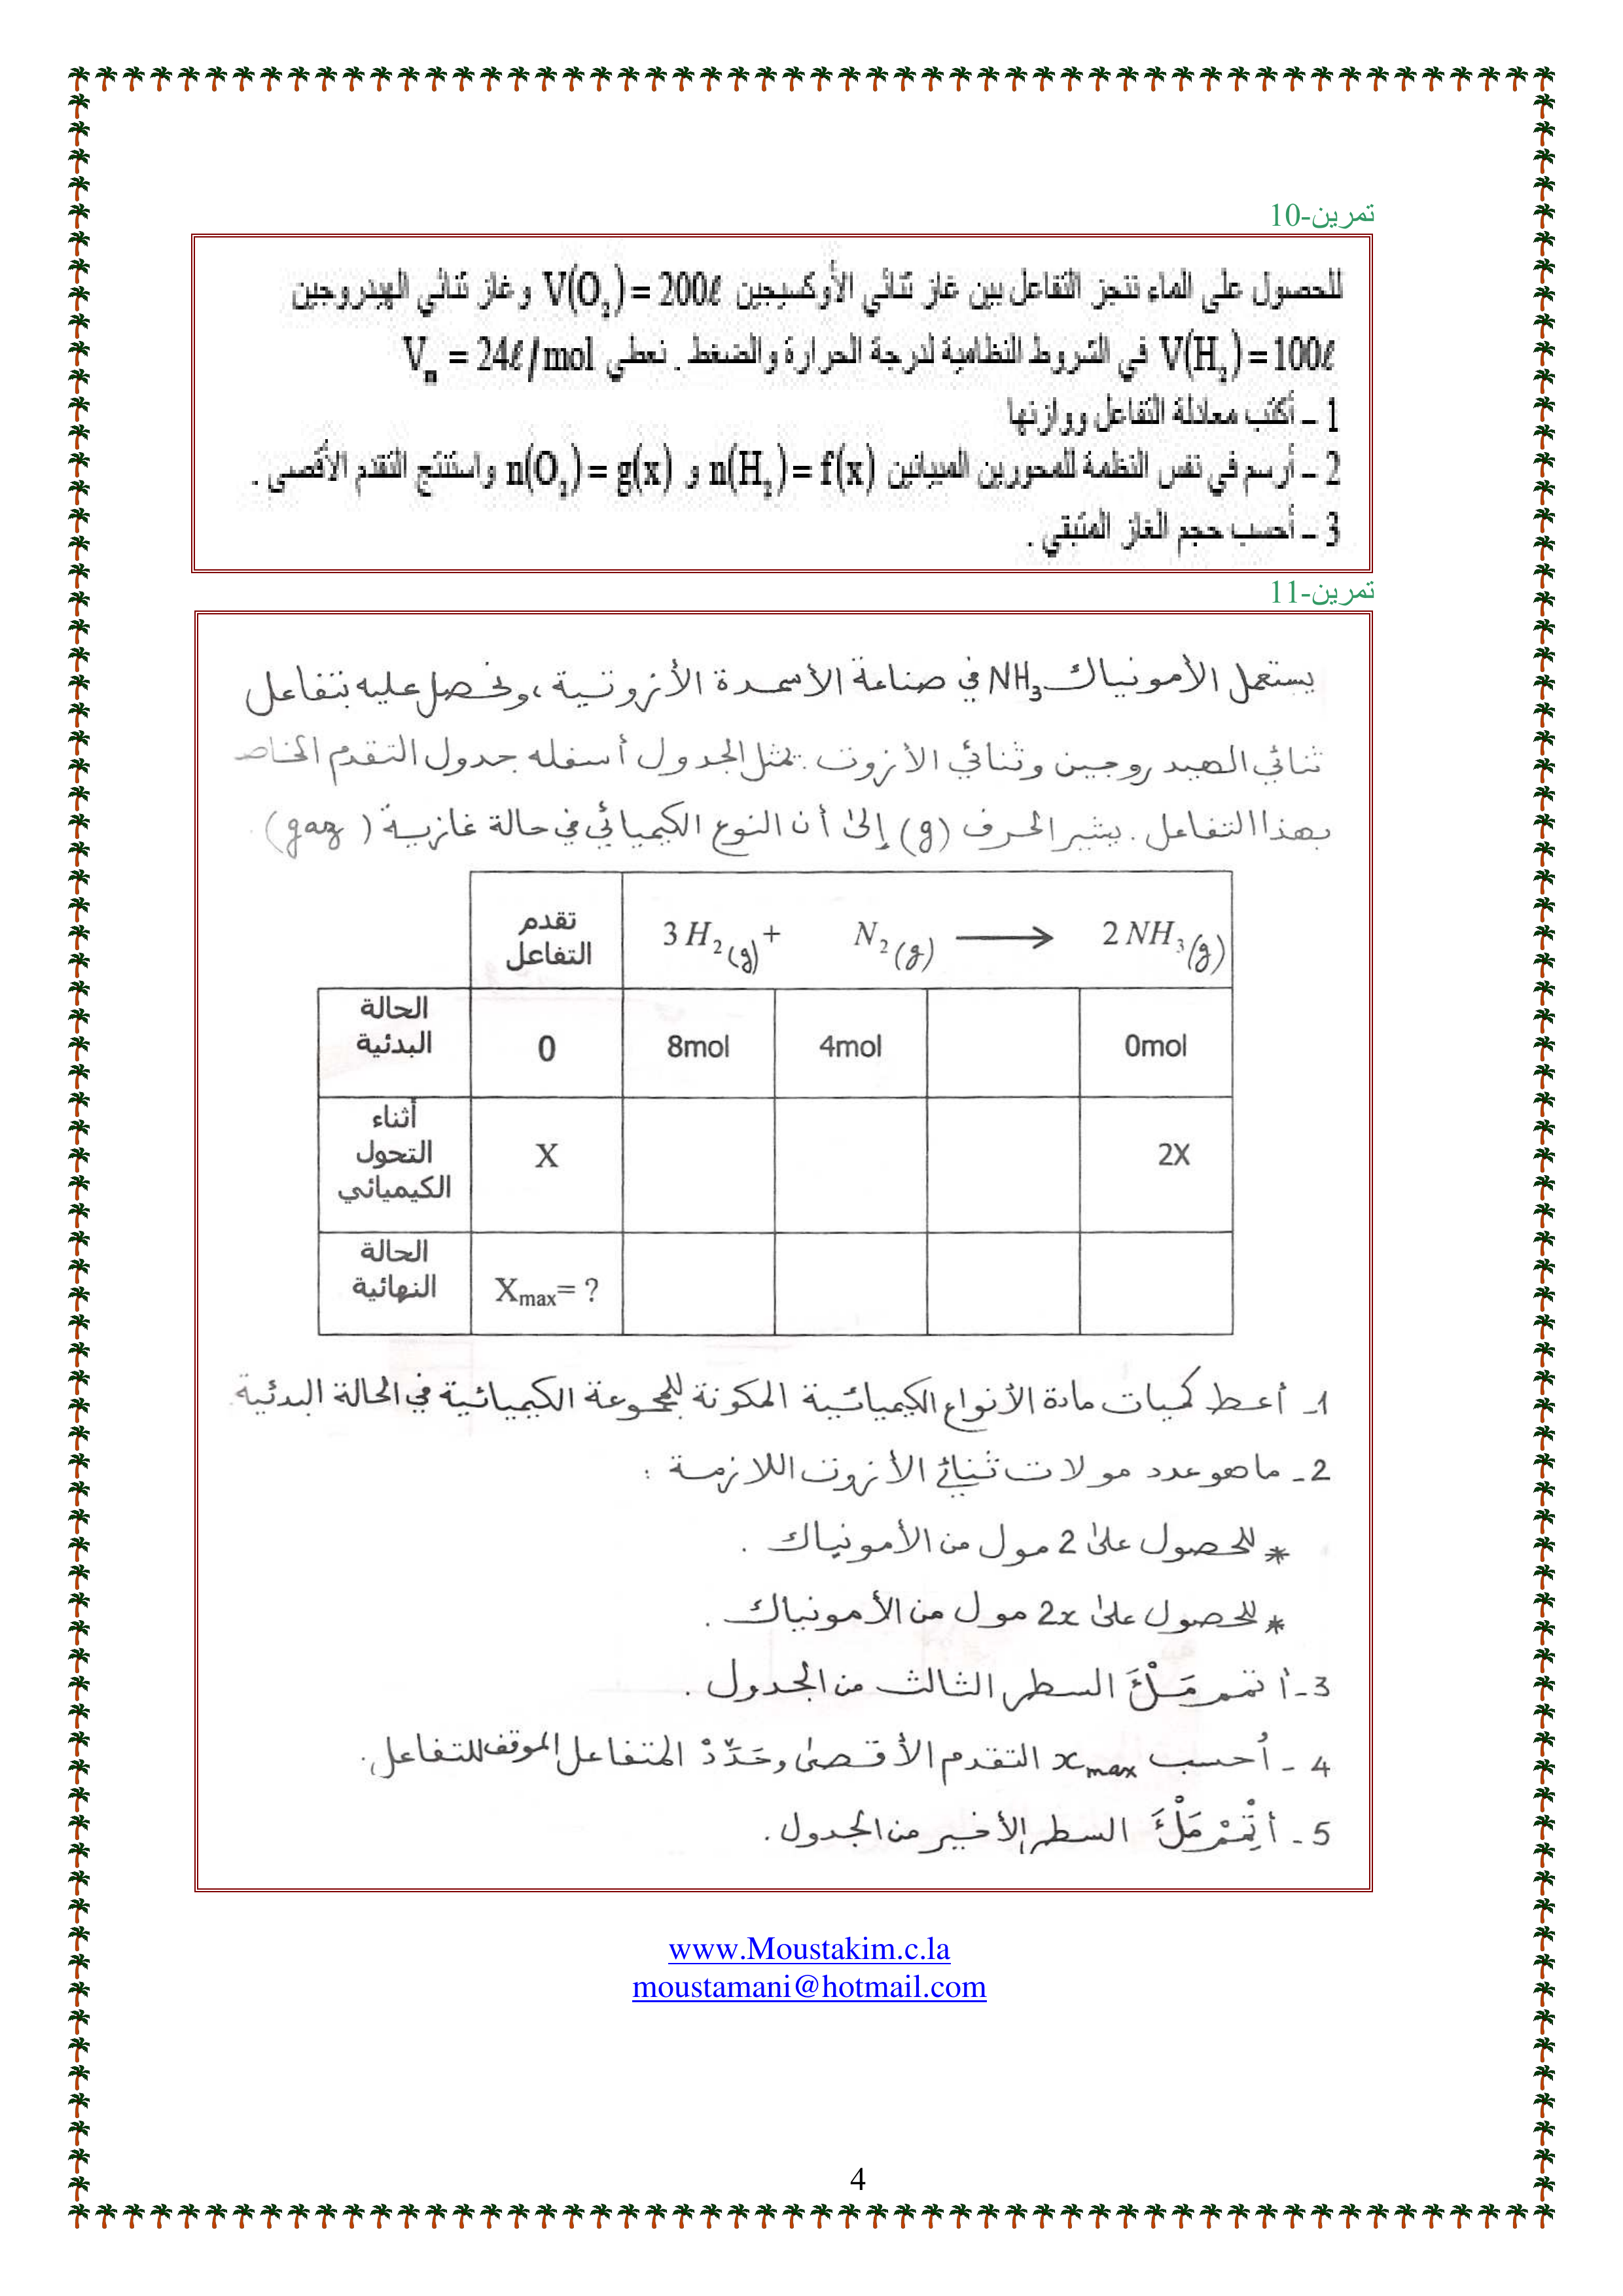 تمرين-10
للحصول على الماء ننجز التفاعل بين غاز ثنائي الأوكسيجين V(O₂) = 200ℓ وغاز ثنائي الهيدروجين
V(H₂) = 100ℓ في الشروط النظامية لدرجة الحرارة والضغط . نعطي Vₘ = 24ℓ/mol
1 – أكتب معادلة التفاعل ووازنها
2 – أرسم في نفس النظمة للمحورين المبيانين n(H₂) = f(x) و n(O₂) = g(x) واستنتج التقدم الأقصى .
3 – أحسب حجم الغاز المتبقي .
تمرين-11
يستعمل الأمونياك NH₃ في صناعة الأسمدة الأزوتية ، ونحصل عليه بتفاعل
ثنائي الهيدروجين وثنائي الأزوت . يمثل الجدول أسفله جدول التقدم الخاص
بهذا التفاعل . يشير الحرف (g) إلى أن النوع الكيميائي في حالة غازية (gaz)
تقدم التفاعل 3 H₂(g) + N₂(g) ⟶ 2 NH₃(g)
الحالة البدئية 0 8mol 4mol 0mol
أثناء التحول الكيميائي X 2X
الحالة النهائية Xmax= ?
1- أعط كميات مادة الأنواع الكيميائية المكونة للمجموعة الكيميائية في الحالة البدئية.
2- ما هو عدد مولات ثنائي الأزوت اللازمة :
* للحصول على 2 مول من الأمونياك .
* للحصول على 2x مول من الأمونياك .
3- أتمم مَلْءَ السطر الثالث من الجدول .
4- أُحسب xmax التقدم الأقصى وحَدِّدْ المتفاعل الموقف للتفاعل.
5- أَتْمِمْ مَلْءَ السطر الأخير من الجدول .
www.Moustakim.c.la
moustamani@hotmail.com
4